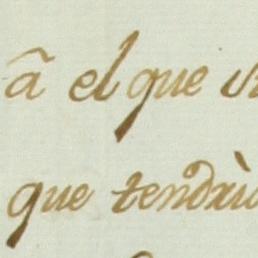 â el que
que tendrìa